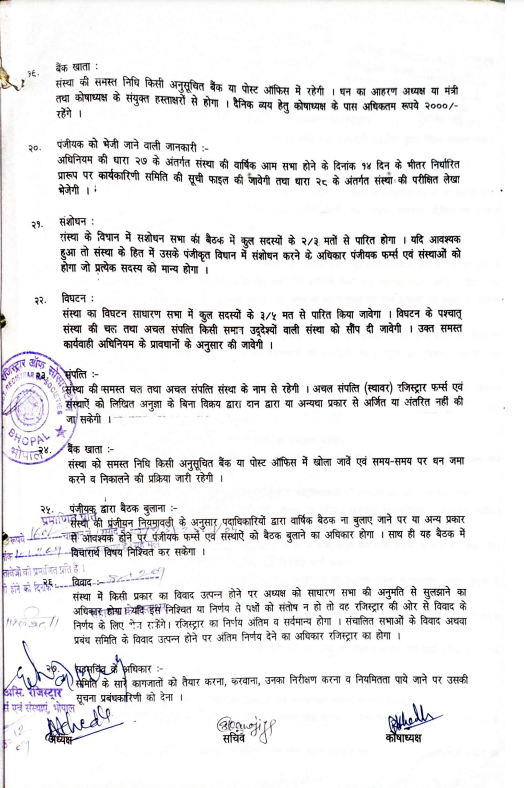 १९. बैंक खाता :
संस्था की समस्त निधि किसी अनुसूचित बैंक या पोस्ट ऑफिस में रहेगी । धन का आहरण अध्यक्ष या मंत्री
तथा कोषाध्यक्ष के संयुक्त हस्ताक्षरों से होगा । दैनिक व्यय हेतु कोषाध्यक्ष के पास अधिकतम रूपये २०००/-
रहेंगे ।
२०. पंजीयक को भेजी जाने वाली जानकारी :-
अधिनियम की धारा २७ के अंतर्गत संस्था की वार्षिक आम सभा होने के दिनांक १४ दिन के भीतर निर्धारित
प्रारूप पर कार्यकारिणी समिति की सूची फाइल की जावेगी तथा धारा २८ के अंतर्गत संस्था की परीक्षित लेखा
भेजेगी ।
२१. संशोधन :
संस्था के विधान में सशोधन सभा की बैठक में कुल सदस्यों के २/३ मतों से पारित होगा । यदि आवश्यक
हुआ तो संस्था के हित में उसके पंजीकृत विधान में संशोधन करने के अधिकार पंजीयक फर्म्स एवं संस्थाओं को
होगा जो प्रत्येक सदस्य को मान्य होगा ।
२२. विघटन :
संस्था का विघटन साधारण सभा में कुल सदस्यों के ३/५ मत से पारित किया जावेगा । विघटन के पश्चात्
संस्था की चल तथा अचल संपति किसी समान उद्देश्यों वाली संस्था को सौंप दी जावेगी । उक्त समस्त
कार्यवाही अधिनियम के प्रावधानों के अनुसार की जावेगी ।
२३. संपत्ति :-
संस्था की समस्त चल तथा अचल संपति संस्था के नाम से रहेगी । अचल संपत्ति (स्थावर) रजिस्ट्रार फर्म्स एवं
संस्थाऐं को लिखित अनुज्ञा के बिना विक्रय द्वारा दान द्वारा या अन्यथा प्रकार से अर्जित या अंतरित नहीं की
जा सकेगी ।
BHOPAL
भोपाल
२४. बैंक खाता :-
संस्था को समस्त निधि किसी अनुसूचित बैंक या पोस्ट ऑफिस में खोला जावें एवं समय-समय पर धन जमा
करने व निकालने की प्रक्रिया जारी रहेगी ।
२५. पंजीयक द्वारा बैठक बुलाना :-
प्रमाणित प्रति
संस्था की पंजीयन नियमावली के अनुसार पदाधिकारियों द्वारा वार्षिक बैठक ना बुलाए जाने पर या अन्य प्रकार
से आवश्यक होने पर पंजीयक फर्म्स एवं संस्थाऐं को बैठक बुलाने का अधिकार होगा । साथ ही यह बैठक में
विचारार्थ विषय निश्चित कर सकेगा ।
२६. विवाद :-
संस्था में किसी प्रकार का विवाद उत्पन्न होने पर अध्यक्ष को साधारण सभा की अनुमति से सुलझाने का
अधिकार होगा । यदि इस निश्चित या निर्णय से पक्षों को संतोष न हो तो वह रजिस्ट्रार की ओर से विवाद के
निर्णय के लिए रजिस्ट्रार का निर्णय अंतिम व सर्वमान्य होगा । संचालित सभाओं के विवाद अथवा
प्रबंध समिति के विवाद उत्पन्न होने पर अंतिम निर्णय देने का अधिकार रजिस्ट्रार का होगा ।
के अधिकार :-
समिति के सारे कागजातों को तैयार करना, करवाना, उनका निरीक्षण करना व नियमितता पाये जाने पर उसकी
सूचना प्रबंधकारिणी को देना ।
असि. रजिस्ट्रार
अध्यक्ष सचिव कोषाध्यक्ष